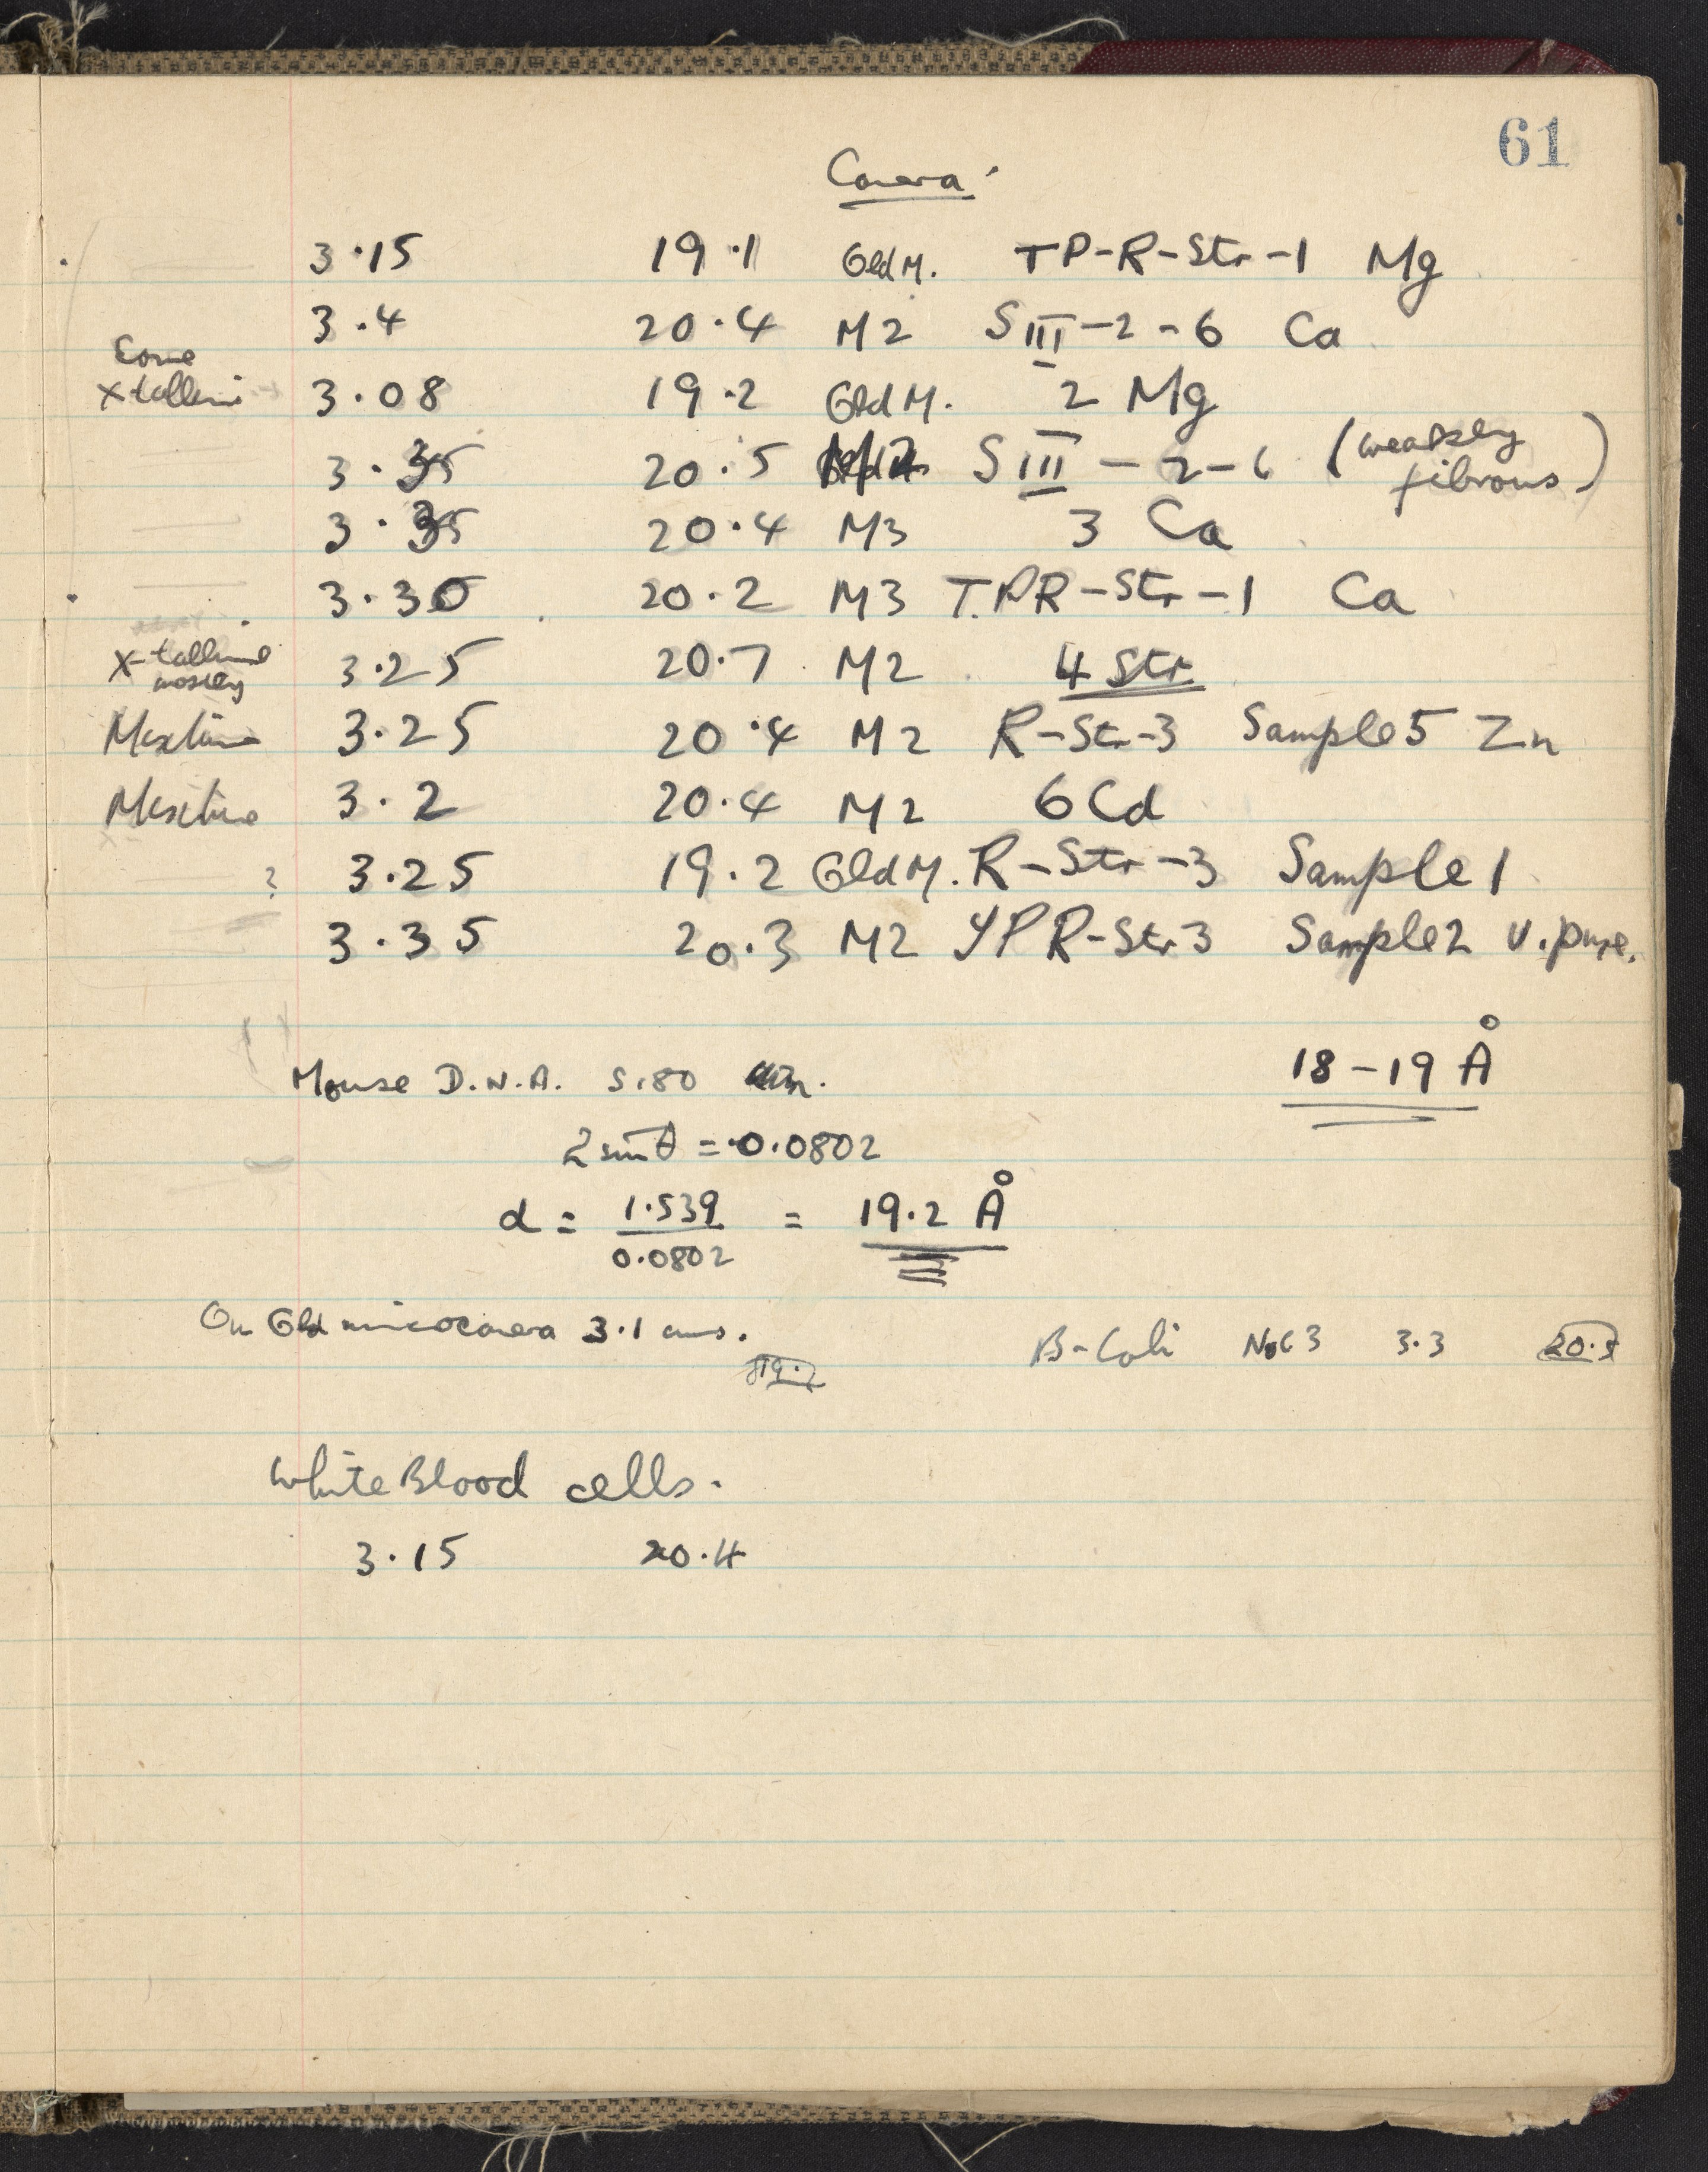 61
Camera
3.15 19.1 Old M. TP-R-Str-1 Mg
3.4 20.4 M2 SIII-2-6 Ca
Some
X-talline 3.08 19.2 Old M. 2 Mg
3.35 20.5 SIII-2-6 (weakly fibrous)
3.35 20.4 M3 3 Ca
3.30 20.2 M3 T.PR-Str-1 Ca
X-talline
mostly 3.25 20.7 M2 4 Str
Mixture 3.25 20.4 M2 R-Str-3 Sample 5 Zn
Mixture 3.2 20.4 M2 6 Cd
? 3.25 19.2 Old M. R-Str-3 Sample 1
3.35 20.3 M2 YPR-Str3 Sample 2 v.pure.
18-19 Å
Mouse D.N.A. S.180
2 sin θ = 0.0802
d = 1.539 / 0.0802 = 19.2 Å
On Old microcamera 3.1 cms.
19.2
B-Coli No 63 3.3 20.5
White Blood cells.
3.15 20.4